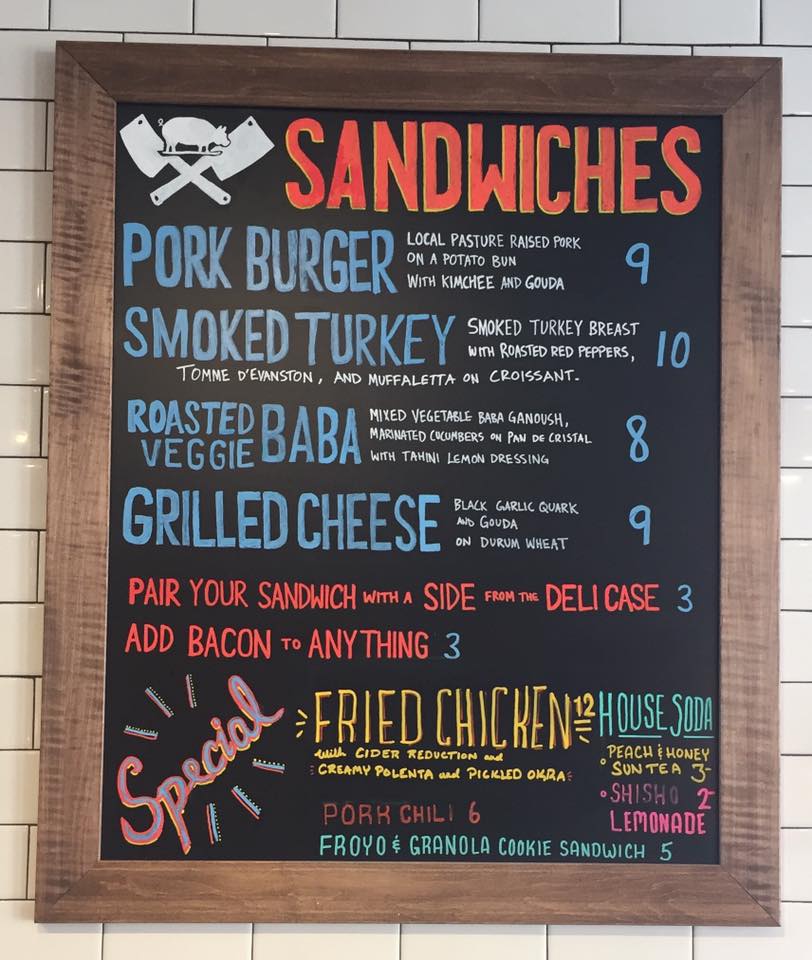 SANDWICHES
PORK BURGER LOCAL PASTURE RAISED PORK
ON A POTATO BUN 9
WITH KIMCHEE AND GOUDA
SMOKED TURKEY SMOKED TURKEY BREAST
WITH ROASTED RED PEPPERS, 10
TOMME D'EVANSTON, AND MUFFALETTA ON CROISSANT.
ROASTED VEGGIE BABA MIXED VEGETABLE BABA GANOUSH,
MARINATED CUCUMBERS ON PAN DE CRISTAL 8
WITH TAHINI LEMON DRESSING
GRILLED CHEESE BLACK GARLIC QUARK
AND GOUDA 9
ON DURUM WHEAT
PAIR YOUR SANDWICH WITH A SIDE FROM THE DELI CASE 3
ADD BACON TO ANYTHING 3
Special
FRIED CHICKEN 12
with CIDER REDUCTION and
CREAMY POLENTA and PICKLED OKRA
PORK CHILI 6
FROYO & GRANOLA COOKIE SANDWICH 5
HOUSE SODA
• PEACH & HONEY
SUN TEA 3-
• SHISHO 2-
LEMONADE